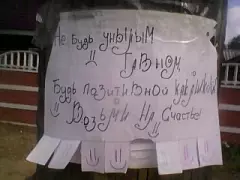 Не Будь унылым
Гавном
Будь позитивной какашкой
Возьми На Счастье!